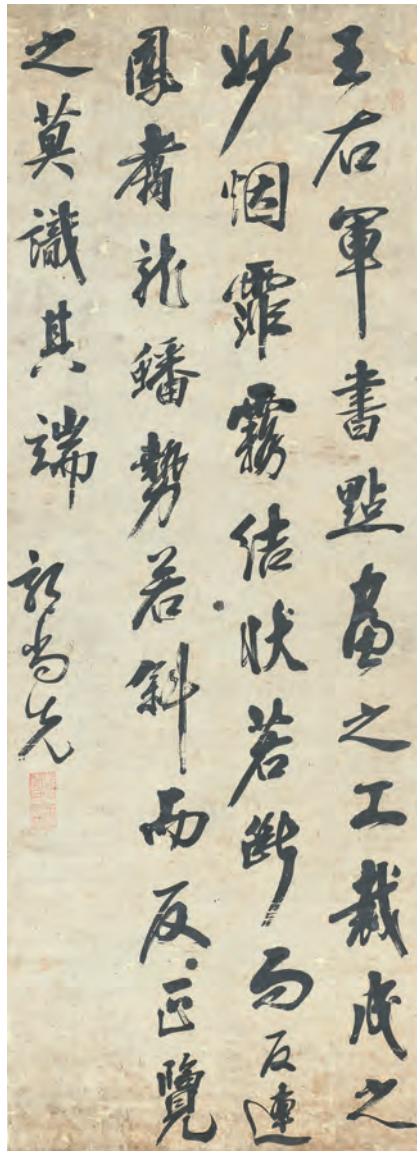 王右軍書點畫之工裁成之
妙烟霏霧結狀若斷而反連
鳳翥龍蟠勢若斜而反正覽
之莫識其端
郭尚先